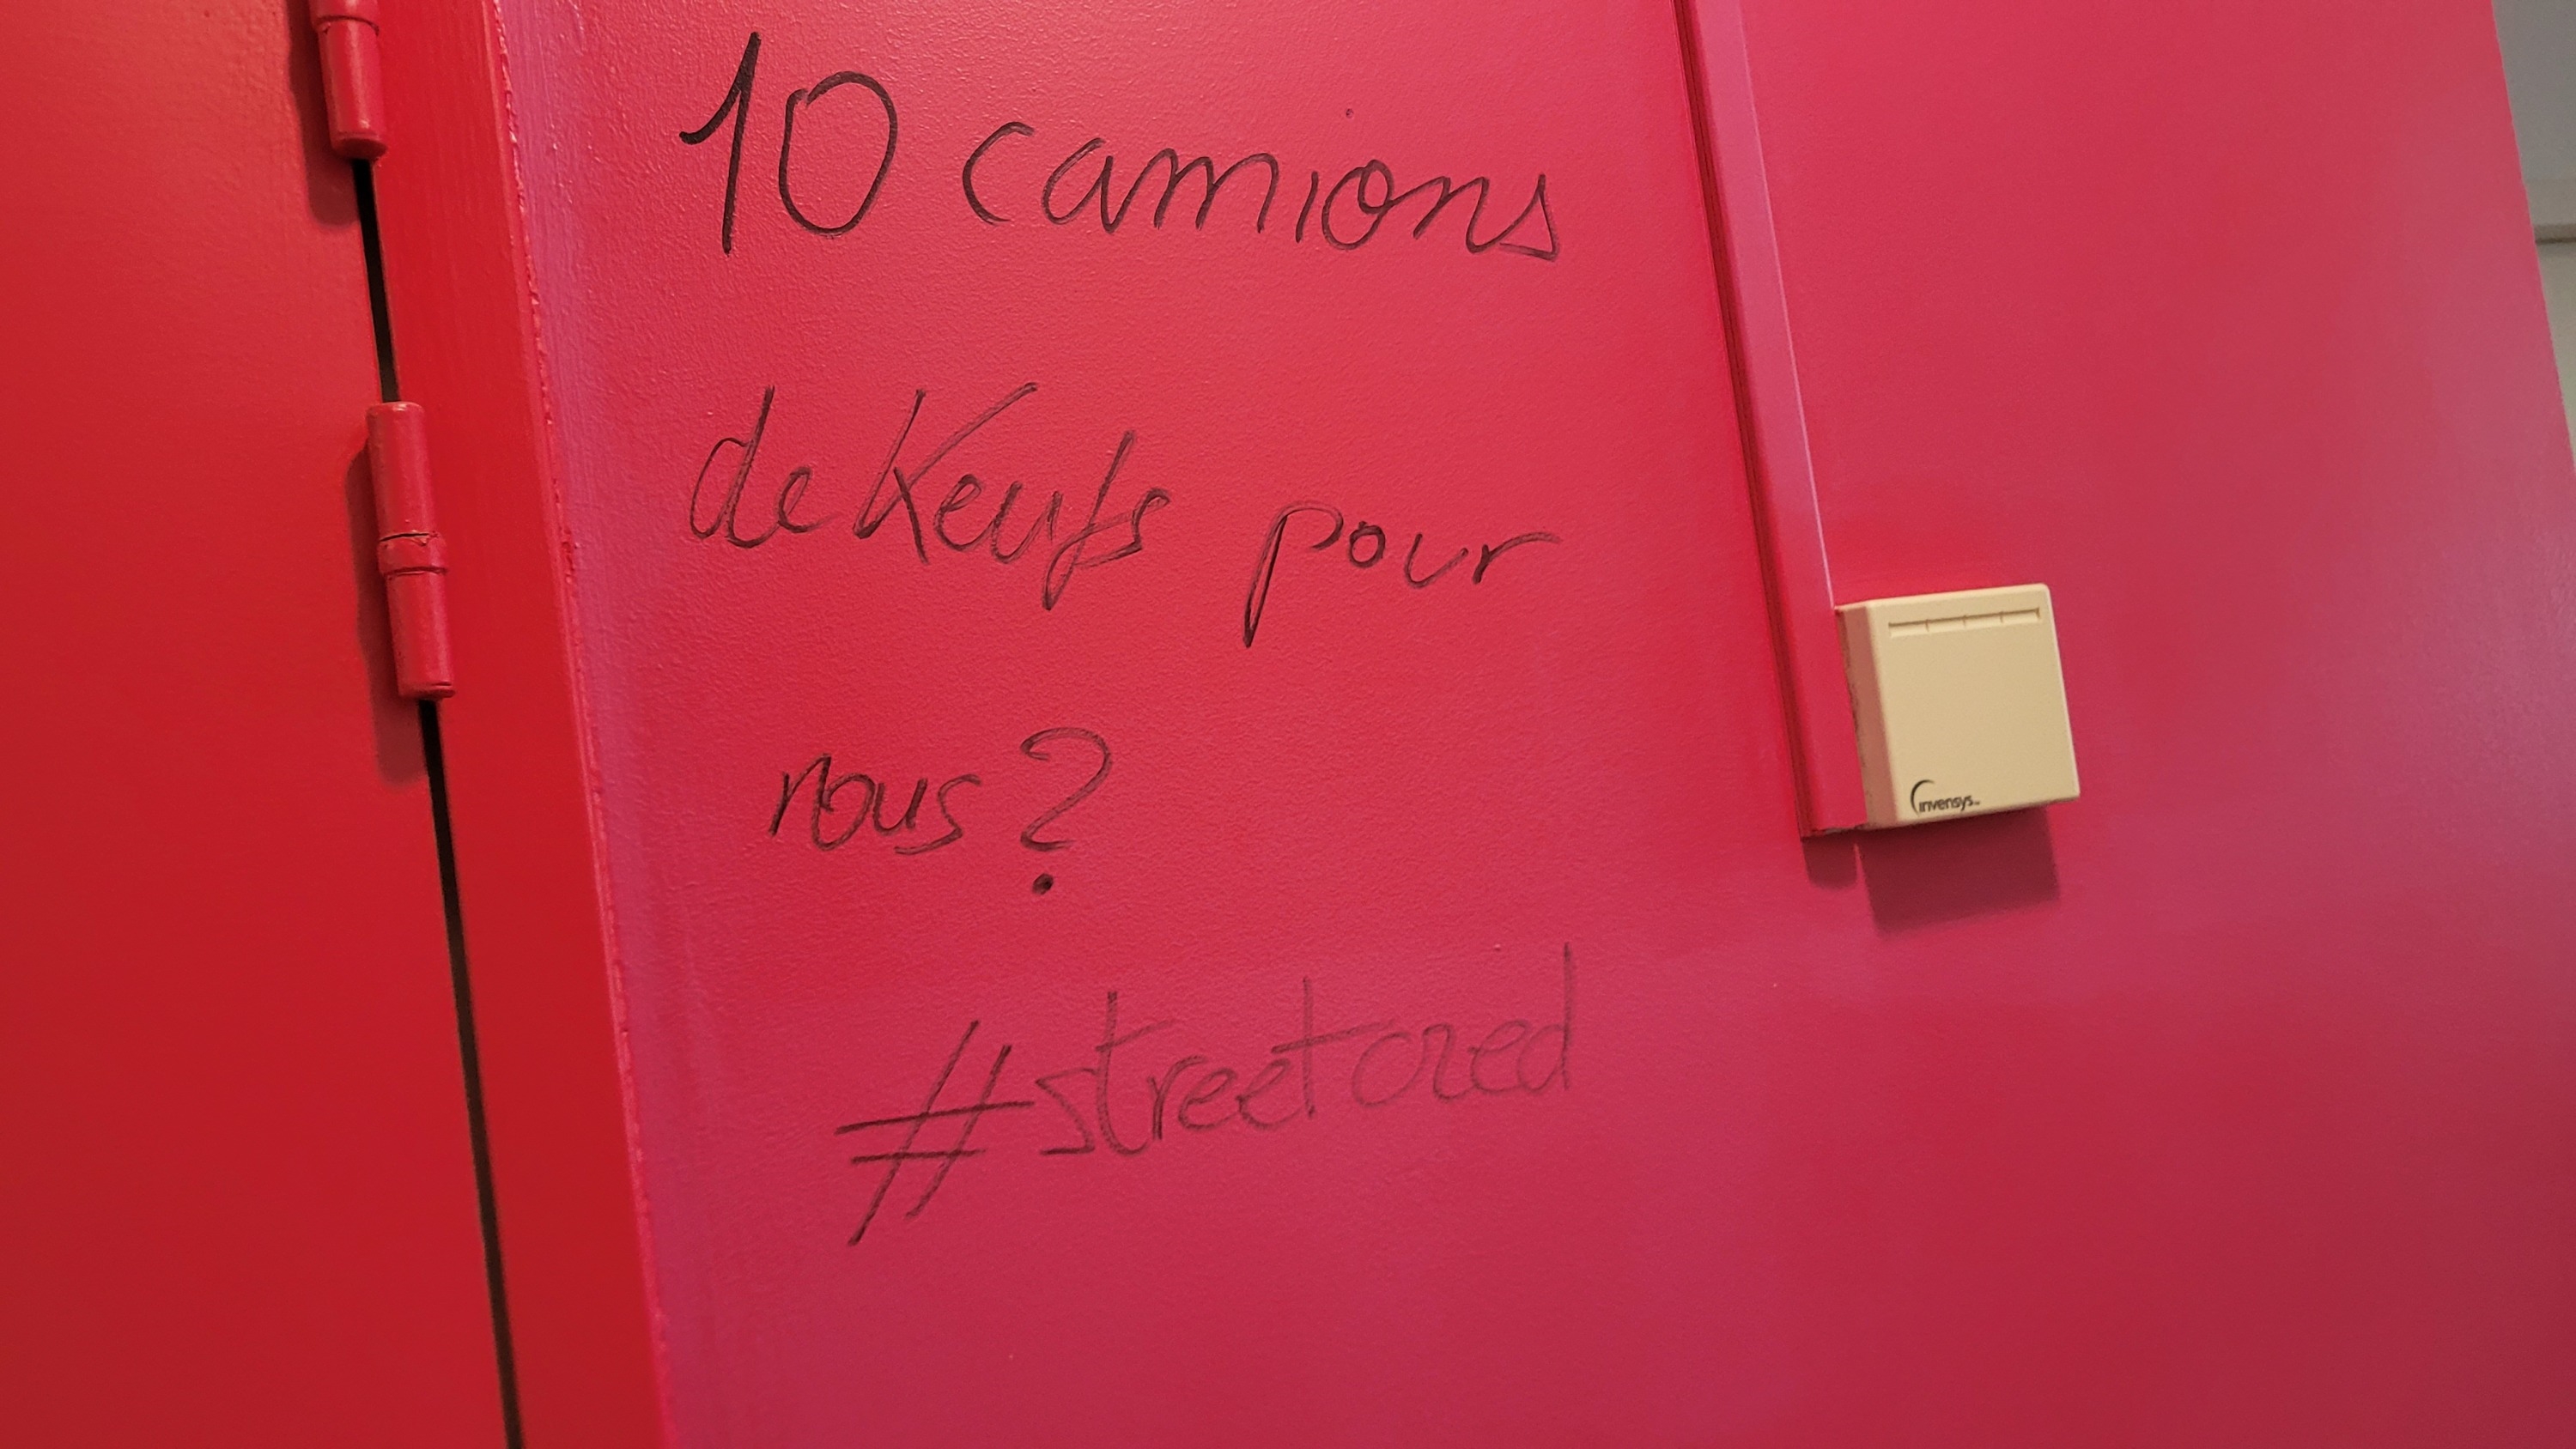 10 camions
de Keufs pour
nous ?
#streetcred
invensys